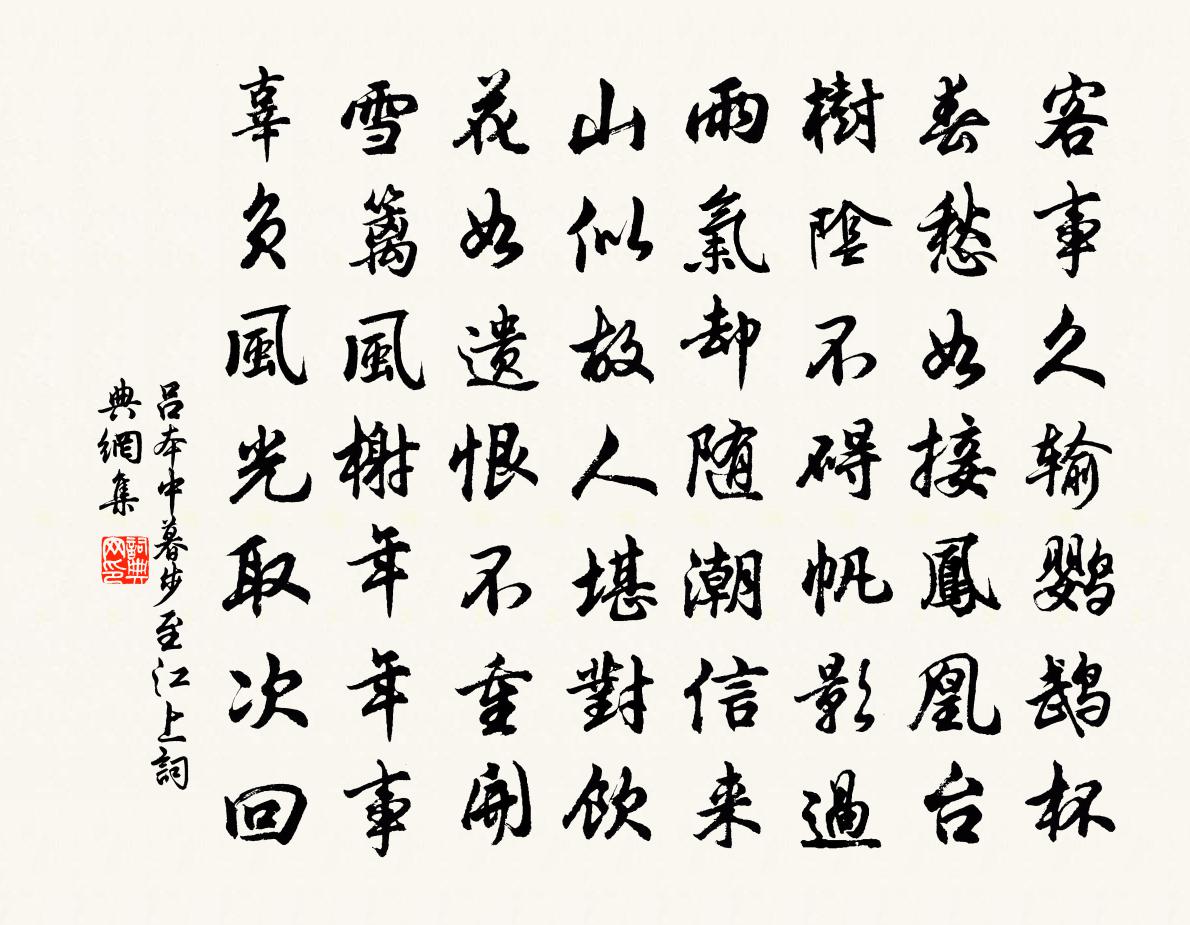 客事久输鹦鹉杯
春愁如接鳳凰台
樹陰不碍帆影過
雨氣却随潮信来
山似故人堪對飲
花如遗恨不重開
雪篱風榭年年事
辜负風光取次回
吕本中暮步至江上詞
典網集
詞典
网印